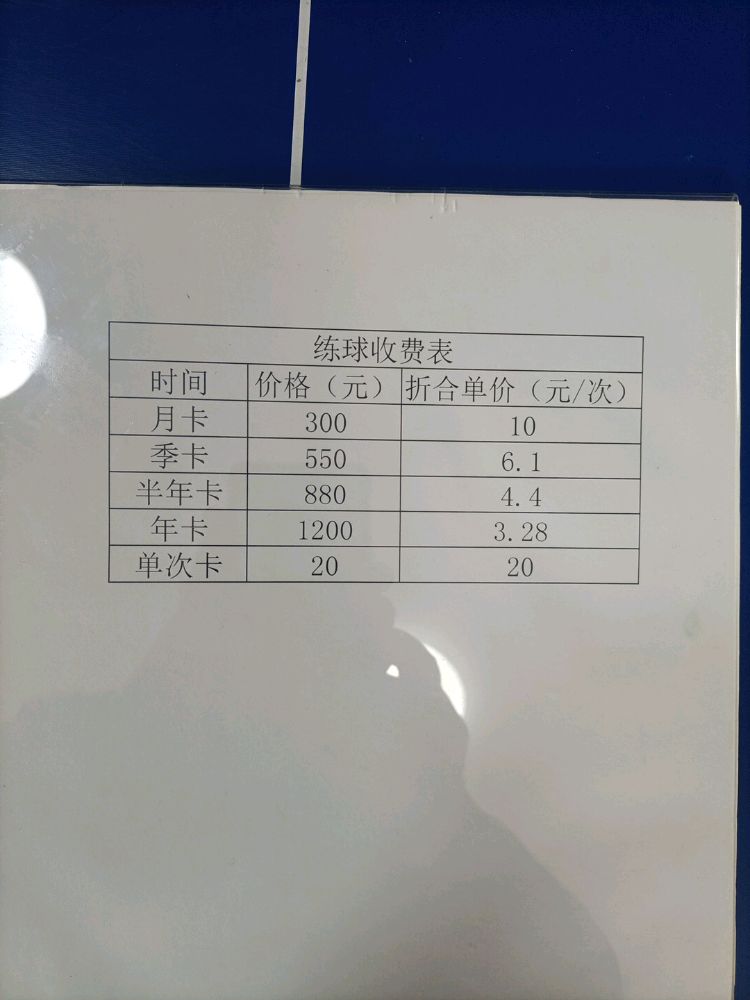 练球收费表
时间 价格（元） 折合单价（元/次）
月卡 300 10
季卡 550 6.1
半年卡 880 4.4
年卡 1200 3.28
单次卡 20 20